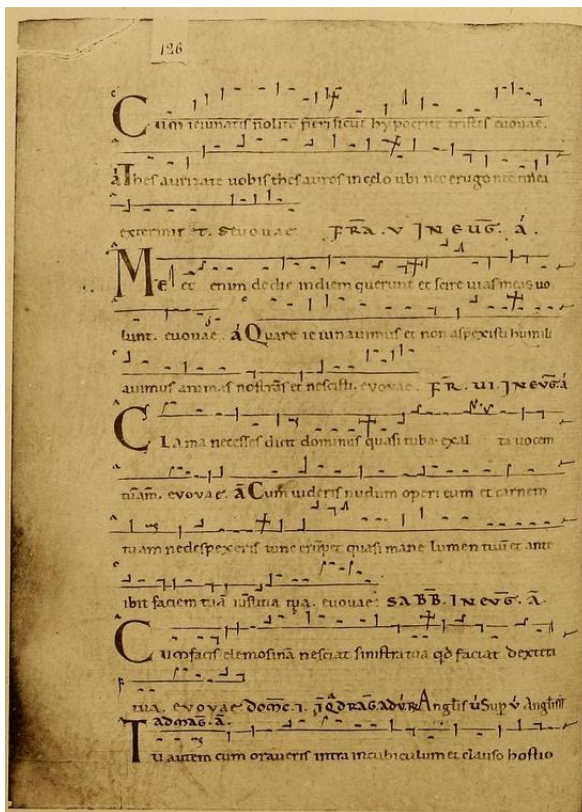 126
Cum ieiunatis nolite fieri sicut hypocrite tristis evovae.
A Thesaurizate vobis thesauros in celo ubi nec erugo nec tinea
exterminat. evovae FRA. V IN EUG. A.
Me et enim de die in diem querunt et scire vias meas vo
lunt. evovae. A Quare ieiunavimus et non aspexisti humili
avimus animas nostras et nescisti. evovae. FR. VI. IN EVG. A
Clama ne cesses dicit dominus quasi tuba exalta vocem
tuam. evovae. A Cum videris nudum operi eum et carnem
tuam ne despexeris tunc erumpet quasi mane lumen tuum et ante
ibit faciem tua iusticia tua. evovae. SABB. IN EVG. A.
Cum facis elemosina nesciat sinistra tua qd faciat dextera
tua. evovae domc. i.
AD MAG. A.
Tu autem cum oraveris intra in cubiculum et clauso hostio